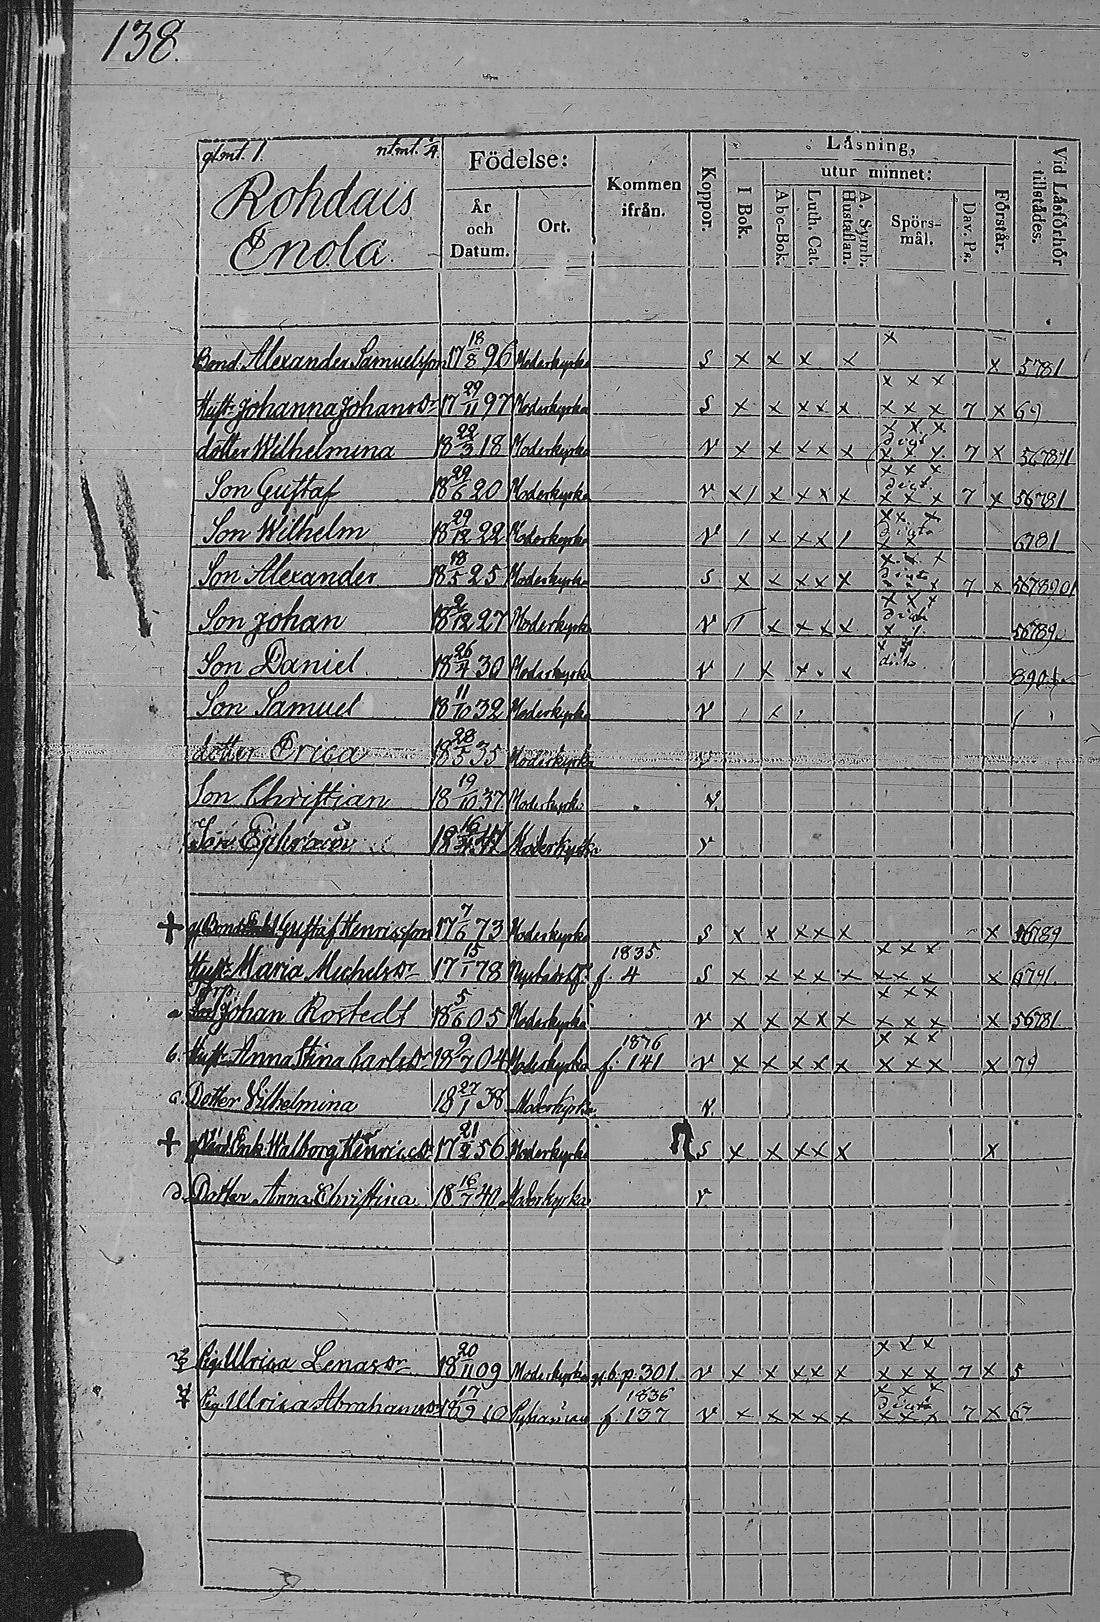 138.
gl.mt. 1. nt.mt. 1/4.
Rohdais
Enola.
Födelse:
År och Datum.
Ort.
Kommen ifrån.
Koppor.
Läsning,
I Bok.
utur minnet:
Abc-Bok.
Luth. Cat.
A. Symb. Hustaflan.
Spörsmål.
Dav. Ps.
Förstår.
Vid Läsförhör tillstädes.
x
Bond. Alexander Samuelsson 17 18/8 96 Moderkyrka s x x x x x 5781
x x x
Hustr. Johanna Johansdr 17 29/11 97 Moderkyrka s x x x x x x x x 7 x 69
x x x
dotter Wilhelmina 18 22/3 18 Moderkyrka v x x x x x x x x 7 x 567891
x x x
Son Gustaf 18 29/6 20 Moderkyrka v x x x x x x x x 7 x 56781
x x x
Son Wilhelm 18 29/12 22 Moderkyrka v / x x x / x x 6781
x x x
Son Alexander 18 18/5 25 Moderkyrka s x x x x x x x x 7 x 5678901
x x x
Son Johan 18 2/12 27 Moderkyrka v x x x x 56789
Son Daniel 18 26/4 30 Moderkyrka v / x x x
Son Samuel 18 11/10 32 Moderkyrka v / x
dotter Erica 18 28/5 35 Moderkyrka v
Son Christian 18 19/10 37 Moderkyrka v.
Moderkyrka v
Gustaf Henricsson 17 7/6 73 Moderkyrka s x x x x x x 6789
1835. x x x
Hustr. Maria Michelsdr 17 15/1 78 f. 4 s x x x x x x x x x
x x x
a. Johan Rostedt 18 5/6 05 Moderkyrka v x x x x x x x x x 56781
1876 x x x
b. Hustr. Anna Stina Carlsdr 18 9/7 04 Moderkyrka f. 141 v x x x x x x x x x 79
c. Dotter Vilhelmina 18 27/1 38 Moderkyrka v.
Enk. Walborg Henricsdr 17 21/2 56 Moderkyrka s x x x x x x
d. Dotter Anna Christina 18 16/7 40 Moderkyrka v.
x x x
Pig. Ulrica Lenasdr 18 20/11 09 Moderkyrka p. 301. v x x x x x x x x 7 x 5
1836 x x x
Pig. Ulrica Abrahamsdr 18 17/9 10 f. 137 v x x x x x x x x 7 x 67